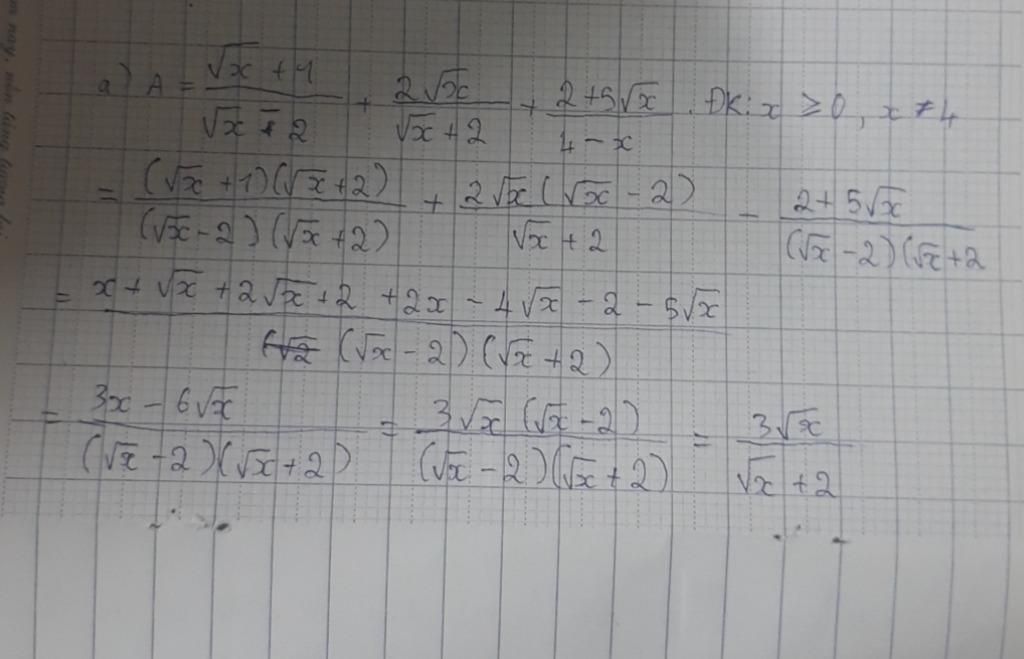 a) A = (√x + 1)/(√x - 2) + (2√x)/(√x + 2) + (2 + 5√x)/(4 - x) . ĐK: x ≥ 0, x ≠ 4
= ((√x + 1)(√x + 2))/((√x - 2)(√x + 2)) + (2√x(√x - 2))/(√x + 2) - (2 + 5√x)/((√x - 2)(√x + 2
= (x + √x + 2√x + 2 + 2x - 4√x - 2 - 5√x)/((√x - 2)(√x + 2))
= (3x - 6√x)/((√x - 2)(√x + 2)) = (3√x (√x - 2))/((√x - 2)(√x + 2)) = (3√x)/(√x + 2)